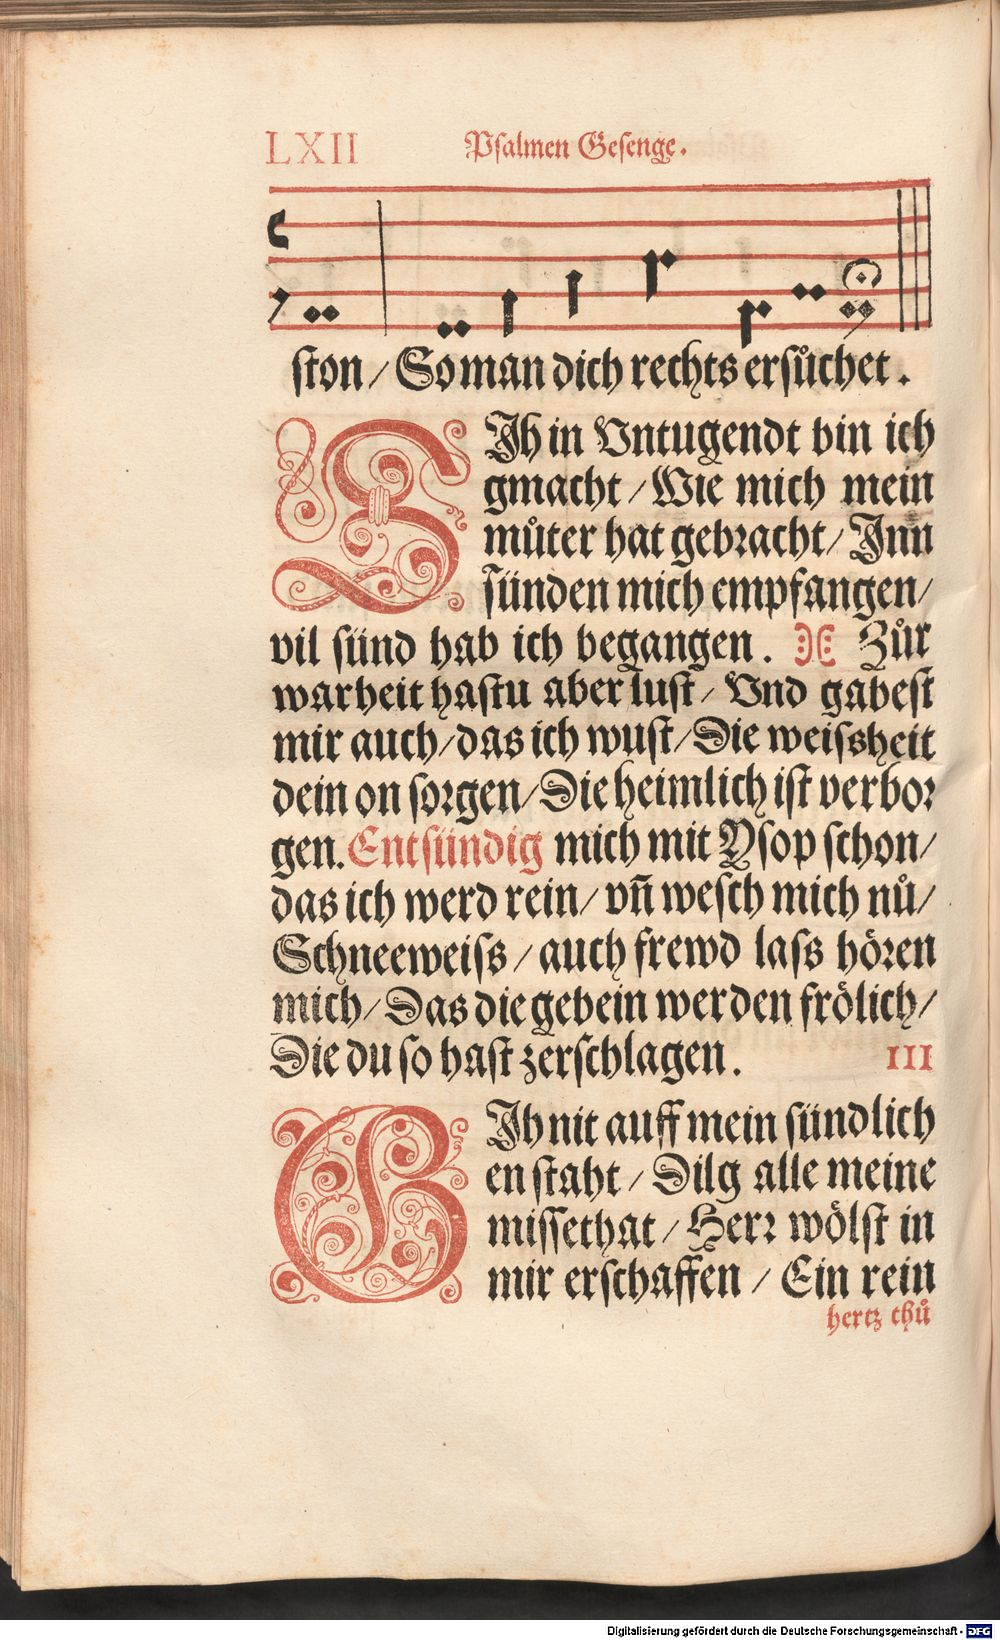 LXII
Psalmen Gesenge.
ston / So man dich rechts ersůchet.
SIh in Vntugendt bin ich
gmacht / Wie mich mein
můter hat gebracht / Inn
sünden mich empfangen /
vil sünd hab ich begangen. Zůr
warheit hastu aber lust / Vnd gabest
mir auch / das ich wust / Die weissheit
dein on sorgen / Die heimlich ist verbor
gen. Entsündig mich mit Ysop schon /
das ich werd rein / vñ wesch mich nů /
Schneeweiss / auch frewd lass hören
mich / Das die gebein werden frölich /
Die du so hast zerschlagen. III
SIh nit auff mein sündlich
en staht / Dilg alle meine
missethat / Herr wölst in
mir erschaffen / Ein rein
hertz thů
Digitalisierung gefördert durch die Deutsche Forschungsgemeinschaft - DFG